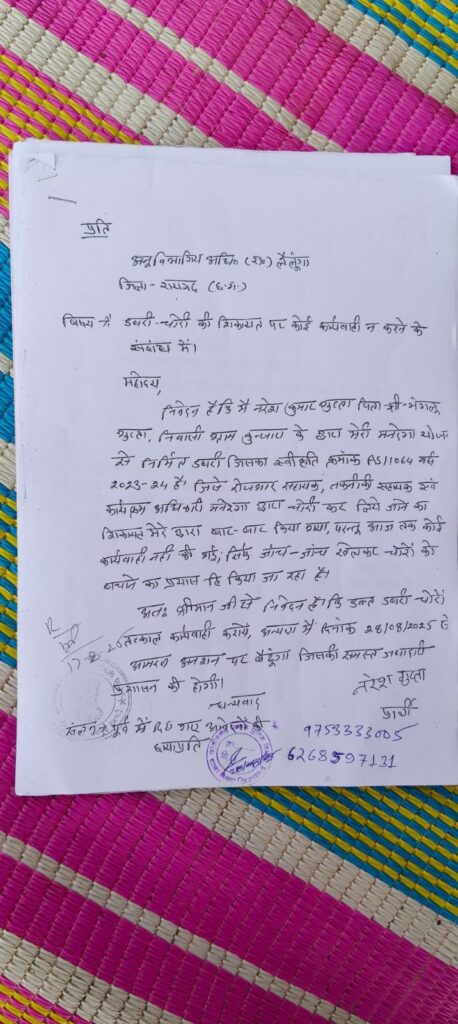 प्रति
अनुविभागीय अधि० (रा०) लैलूंगा
जिला- रायगढ़ (छ.ग.)
विषय :- डबरी-चोरी की शिकायत पर कोई कार्यवाही न करने के
संबंध में।
महोदय,
निवेदन है कि मैं नरेश कुमार गुप्ता पिता श्री मंगलू
गुप्ता, निवासी ग्राम के द्वारा मेरी मनरेगा योजना
से निर्मित डबरी जिसका स्वीकृति क्रमांक AS/1064 वर्ष
2023-24 है। जिसे रोजगार सहायक, तकनीकी सहायक एवं
कार्यक्रम अधिकारी मनरेगा द्वारा चोरी कर लिये जाने का
शिकायत मेरे द्वारा बार-बार किया गया, परन्तु आज तक कोई
कार्यवाही नहीं की गई, सिर्फ जांच-जांच खेलकर चोरों को
बचाने का प्रयास हि किया जा रहा है।
अतः श्रीमान जी से निवेदन है कि उक्त डबरी चोरों
तत्काल कार्यवाही करायें, अन्यथा मैं दिनांक 28/08/2025 से
आमरण अनशन पर बैठूंगा जिसकी समस्त जवाबदारी
प्रशासन की होगी।
धन्यवाद
नरेश गुप्ता
प्रार्थी
संलग्न - पूर्व में दिए गए आवेदनों की
छायाप्रति
9753333005
6268597131